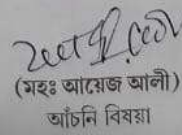 (মহঃ আয়েজ আলী)
আঁচনি বিষয়া